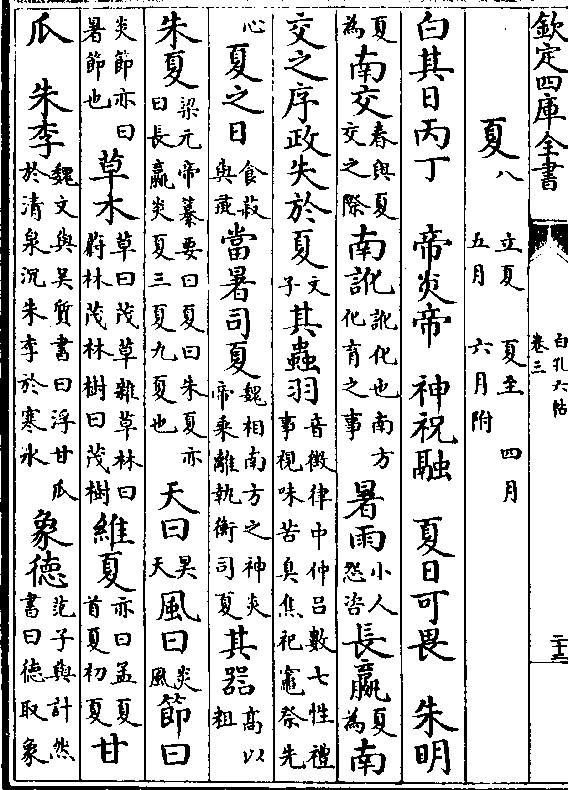 欽定四庫全書 白孔六帖 卷三 二十三
夏八 立夏 夏至 四月 五月 六月附
白其日丙丁 帝炎帝 神祝融 夏日可畏 朱明
夏為南交春與夏交之際南訛訛化也南方化育之事暑雨小人怨咨長贏夏為南
交之序政失於夏文子其蟲羽音徵律中仲呂數七性禮事視味苦臭焦祀竈祭先
心夏之日食菽與當暑司夏魏相南方之神炎帝乘離執衡司夏其器高以粗
朱夏梁元帝纂要曰夏曰朱夏亦曰長贏炎夏三夏九夏也天曰昊天風曰炎風節曰
炎節亦曰暑節也草木草曰茂草雜草林曰蔚林茂林樹曰茂樹維夏亦曰孟夏首夏初夏甘
瓜 朱李魏文與吳質書曰浮甘瓜於清泉沉朱李於寒氷象德范子與計然書曰德取象